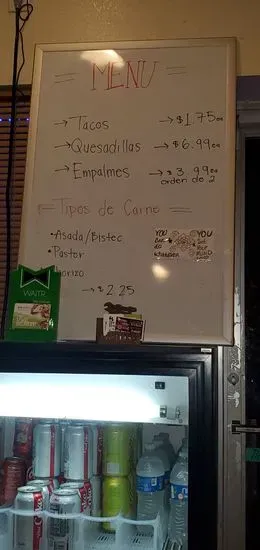 = MENU =
→ Tacos → $1.75 ea
→ Quesadillas → $6.99 ea
→ Empalmes → $3.99 ea
orden de 2
= Tipos de Carne =
• Asada/Bistec
• Pastor
orizo
→ $2.25
YOU YOU
do
WAITR